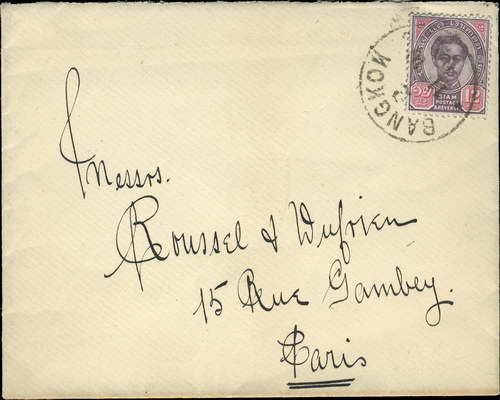 BANGKOK
SIAM
POSTAGE
&REVENUE
12
Messrs.
Roussel & Dufrien
15 Rue Gambey.
Paris